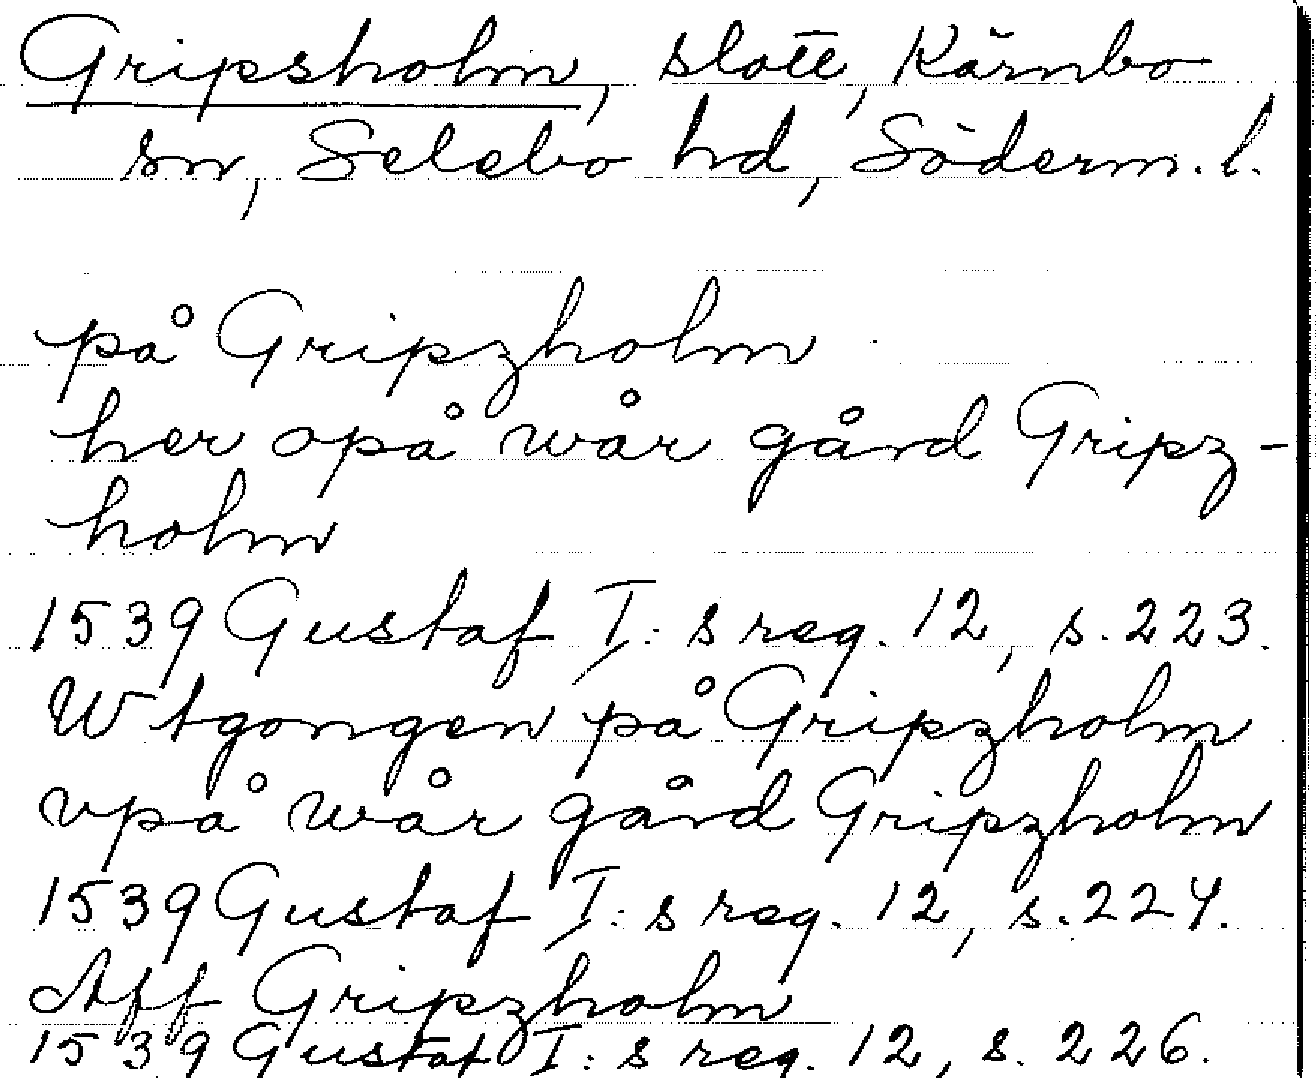 Gripsholm, slott, Kärnbo
sn, Selebo hd, Söderm. l.
på Gripzholm
her opå wår gård Gripz-
holm
1539 Gustaf I: s reg. 12, s. 223.
Wtgongen på Gripzholm
vpå wår gård Gripzholm
1539 Gustaf I: s reg. 12, s. 224.
Aff Gripzholm
1539 Gustaf I: s reg. 12, s. 226.